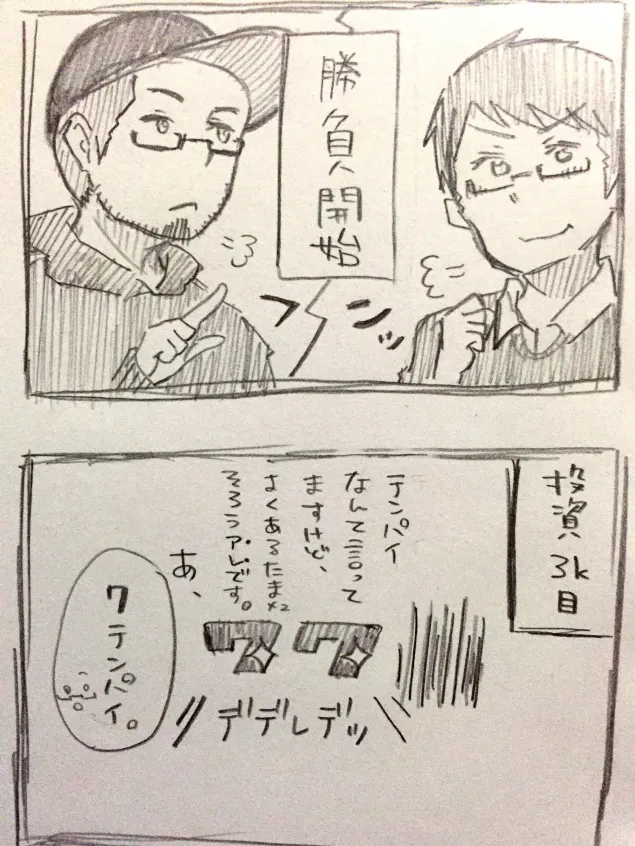 勝負開始
フンッ
投資3k目
テンパイ
なんて言って
ますけど、
よくあるたま×2
そろうアレです。
あ、
77
デデレデッ
7テンパイ。